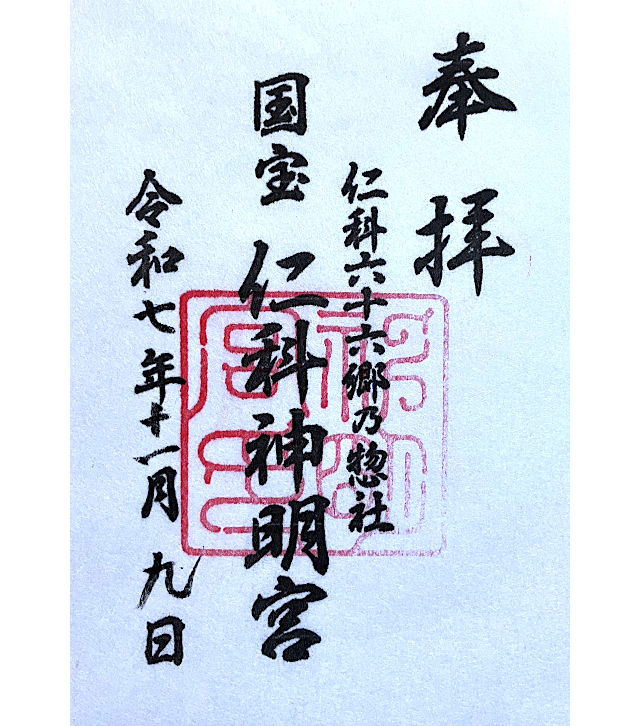 奉拝
仁科六十六郷乃惣社
国宝 仁科神明宮
令和七年十一月九日